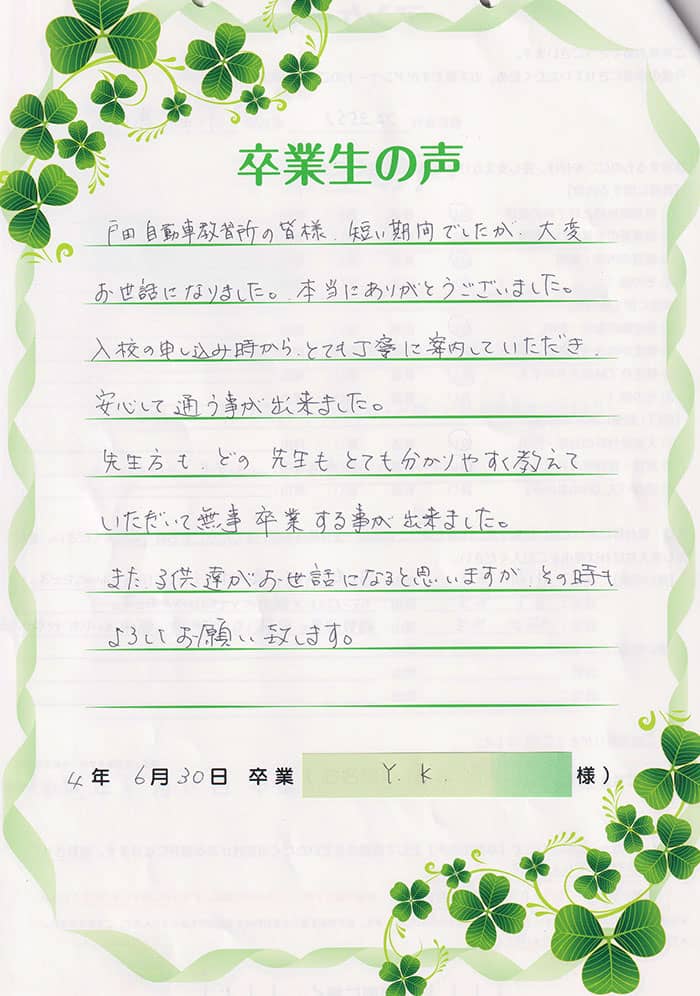 卒業生の声
戸田自動車教習所の皆様、短い期間でしたが、大変
お世話になりました。本当にありがとうございました。
入校の申し込み時から、とても丁寧に案内していただき、
安心して通う事が出来ました。
先生方も、どの先生もとても分かりやすく教えて
いただいて無事卒業する事が出来ました。
また子供達がお世話になると思いますが、その時も
よろしくお願い致します。
4年 6月30日 卒業 Y.K. 様)